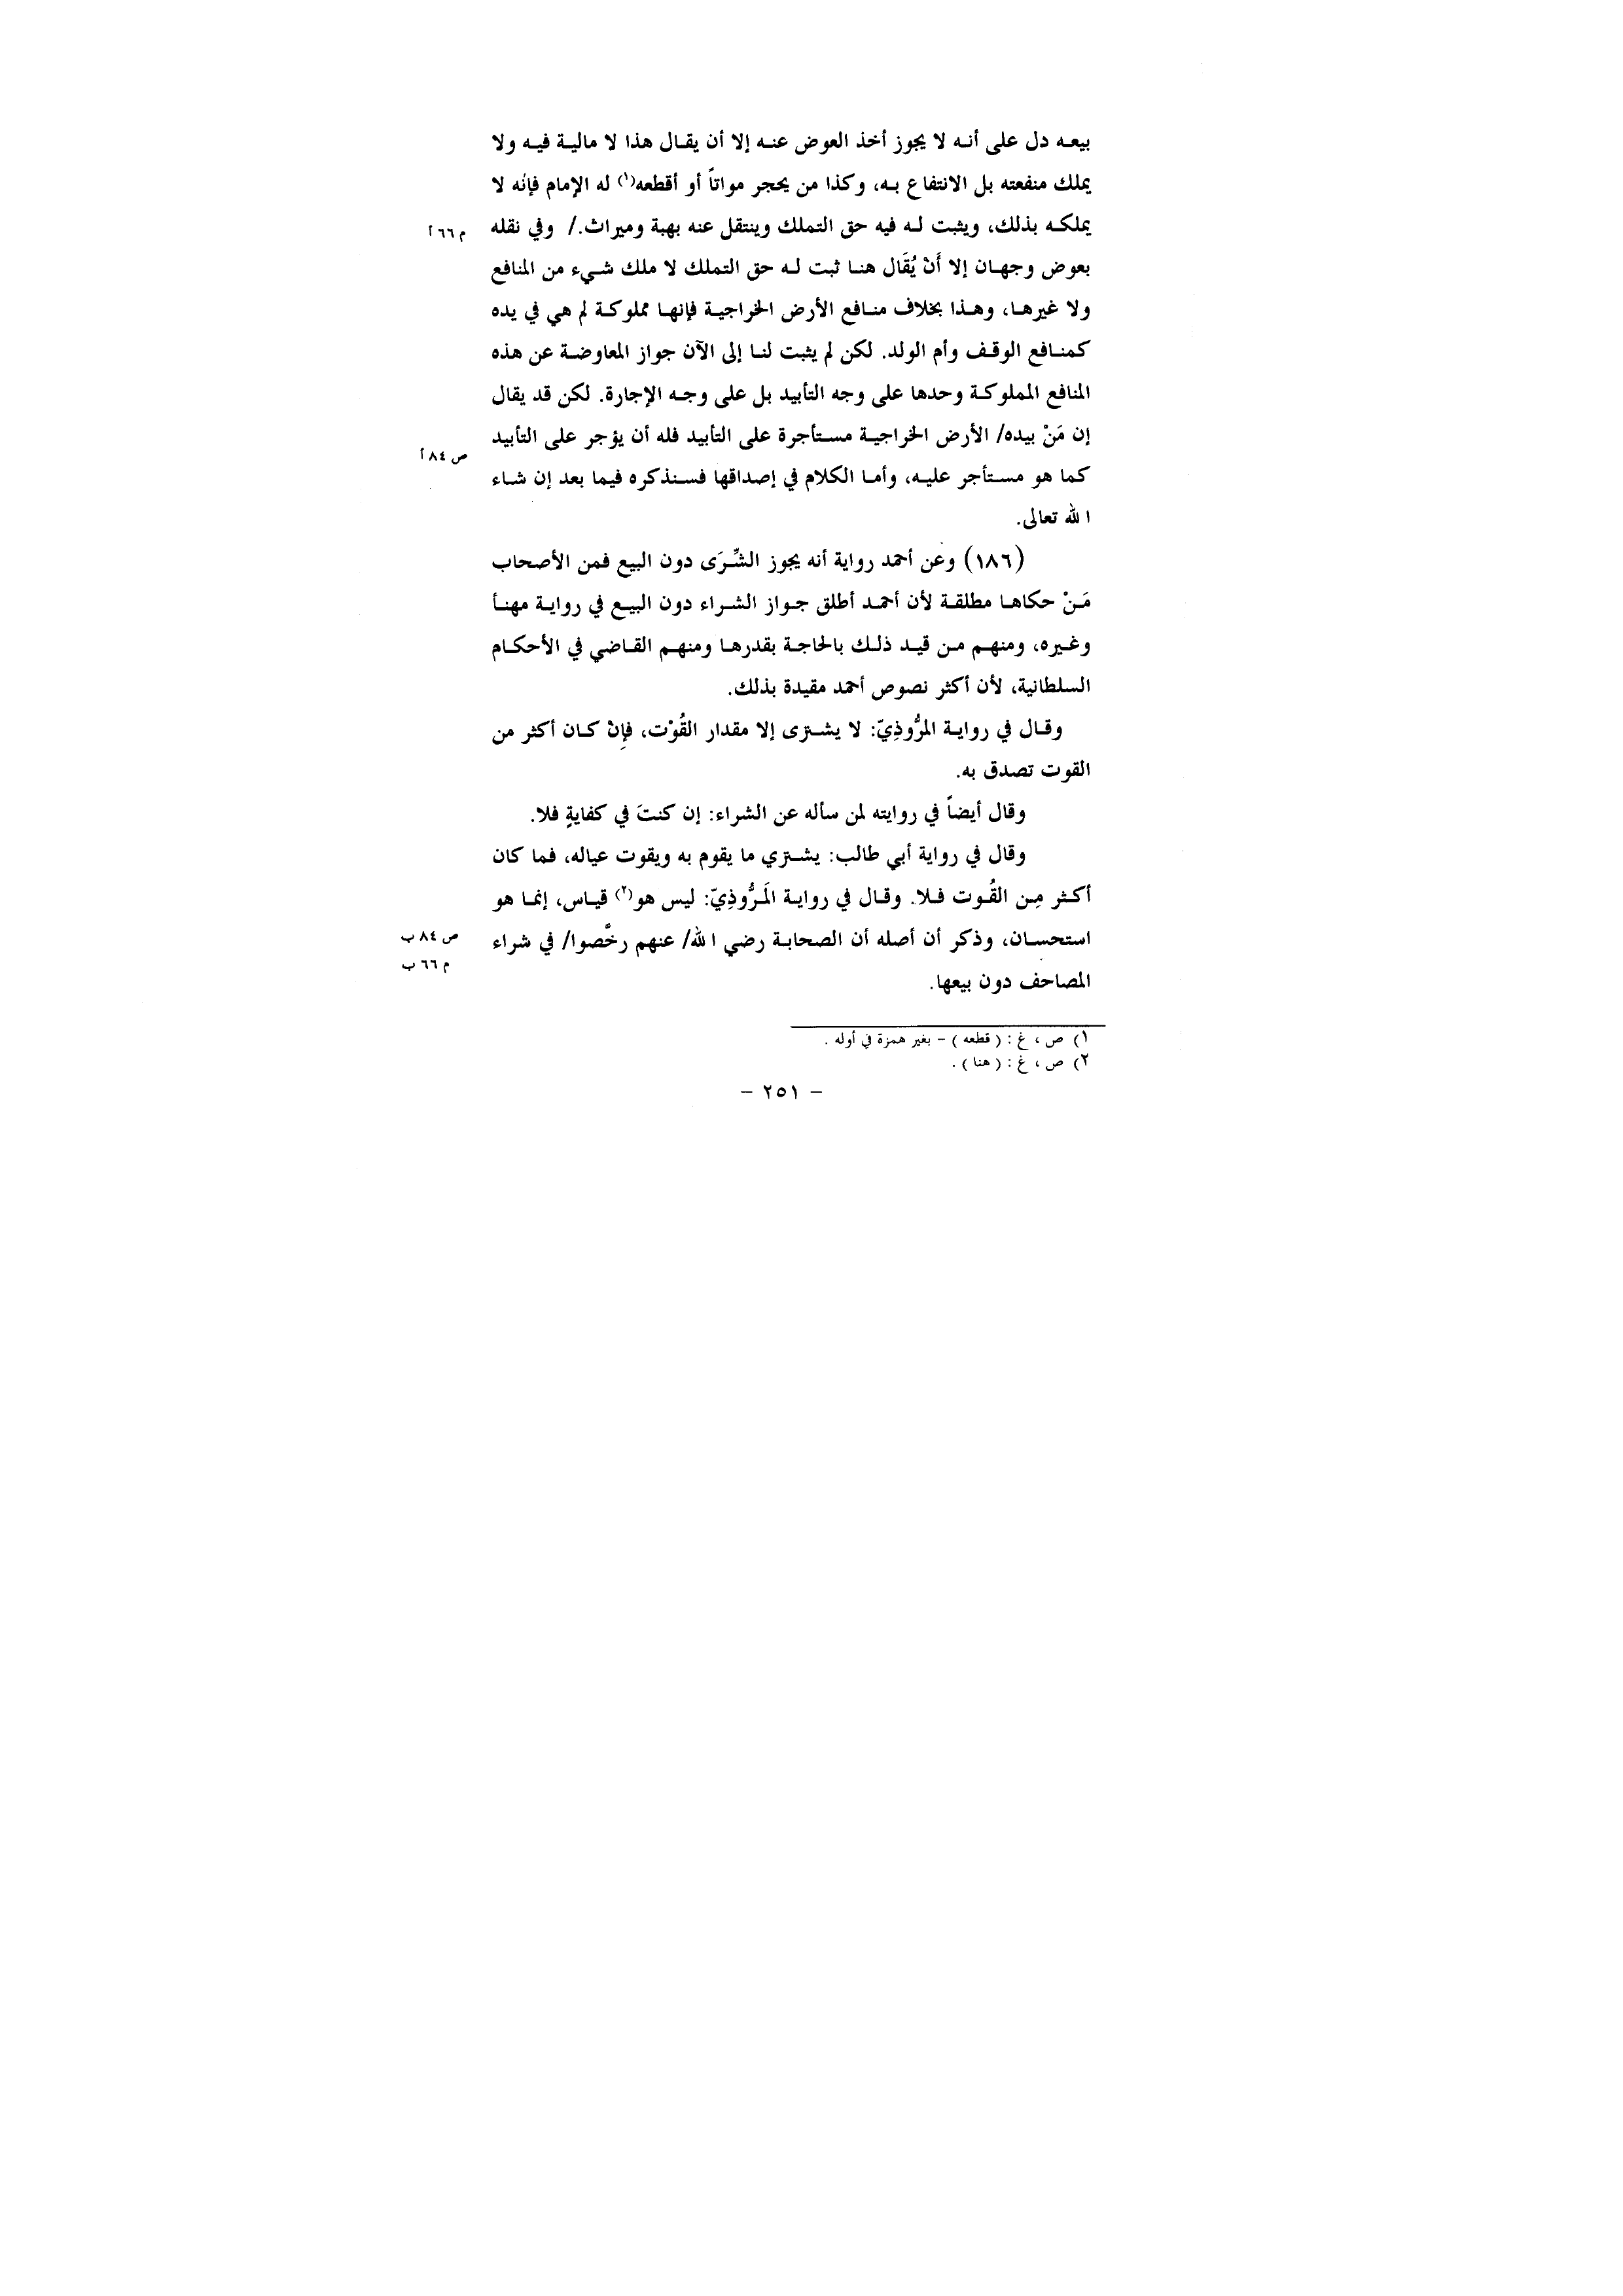 بيعه دل على أنه لا يجوز أخذ العوض عنه إلا أن يقال هذا لا مالية فيه ولا
يملك منفعته بل الانتفاع به، وكذا من يحجر مواتاً أو أقطعه(١) له الإمام فإنه لا
يملكه بذلك، ويثبت له فيه حق التملك وينتقل عنه بهبة وميراث./ وفي نقله
م ٦٦ أ
بعوض وجهان إلا أَنْ يُقَال هنا ثبت له حق التملك لا ملك شيء من المنافع
ولا غيرها، وهذا بخلاف منافع الأرض الخراجية فإنها مملوكة لم هي في يده
كمنافع الوقف وأم الولد. لكن لم يثبت لنا إلى الآن جواز المعاوضة عن هذه
المنافع المملوكة وحدها على وجه التأبيد بل على وجه الإجارة. لكن قد يقال
إن مَنْ بيده/ الأرض الخراجية مستأجرة على التأبيد فله أن يؤجر على التأبيد
ص ٨٤ أ
كما هو مستأجر عليه، وأما الكلام في إصداقها فسنذكره فيما بعد إن شاء
الله تعالى.
(١٨٦) وعن أحمد رواية أنه يجوز الشِّرَى دون البيع فمن الأصحاب
مَنْ حكاها مطلقة لأن أحمد أطلق جواز الشراء دون البيع في رواية مهنأ
وغيره، ومنهم من قيد ذلك بالحاجة بقدرها ومنهم القاضي في الأحكام
السلطانية، لأن أكثر نصوص أحمد مقيدة بذلك.
وقال في رواية المرُّوذِيّ: لا يشترى إلا مقدار القُوْت، فإنْ كان أكثر من
القوت تصدق به.
وقال أيضاً في روايته لمن سأله عن الشراء: إن كنتَ في كفايةٍ فلا.
وقال في رواية أبي طالب: يشتري ما يقوم به ويقوت عياله، فما كان
أكثر مِن القُوت فلا. وقال في رواية المَرُّوذِيّ: ليس هو(٢) قياس، إنما هو
استحسان، وذكر أن أصله أن الصحابة رضي الله/ عنهم رخَّصوا/ في شراء
ص ٨٤ ب
م ٦٦ ب
المصاحف دون بيعها.
١) ص ، غ : ( قطعه ) – بغير همزة في أوله .
٢) ص ، غ : ( هنا ) .
– ٢٥١ –